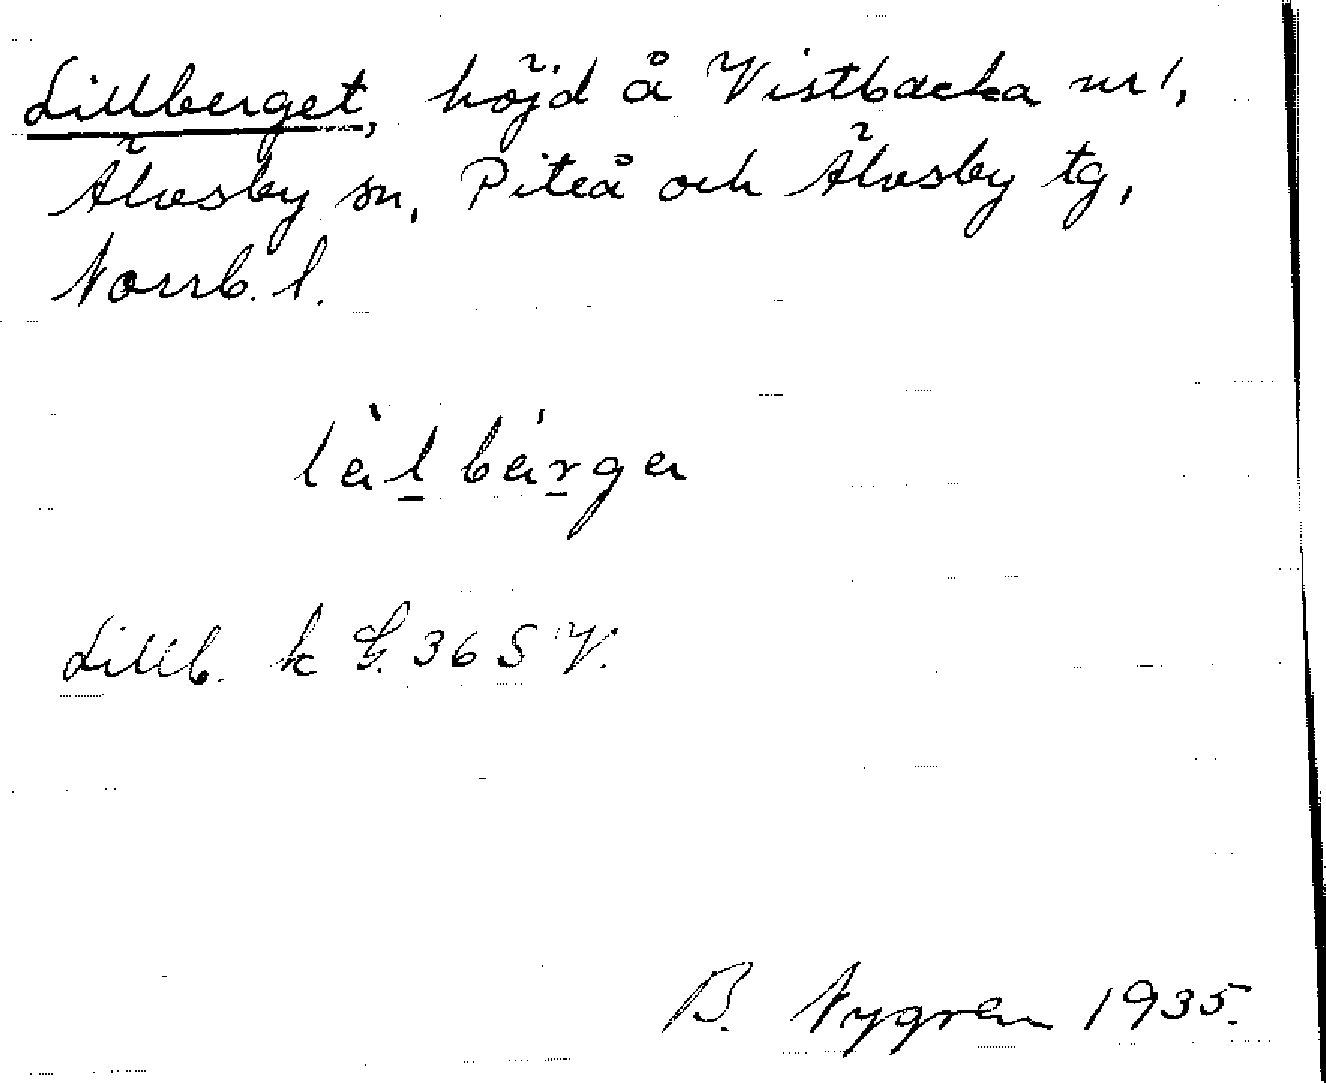 Lillberget, höjd å Vistbacka nr 1,
Älvsby sn, Piteå och Älvsby tg,
Norrb. l.
Lillb. k G. 36 S V.
B. Nygren 1935.